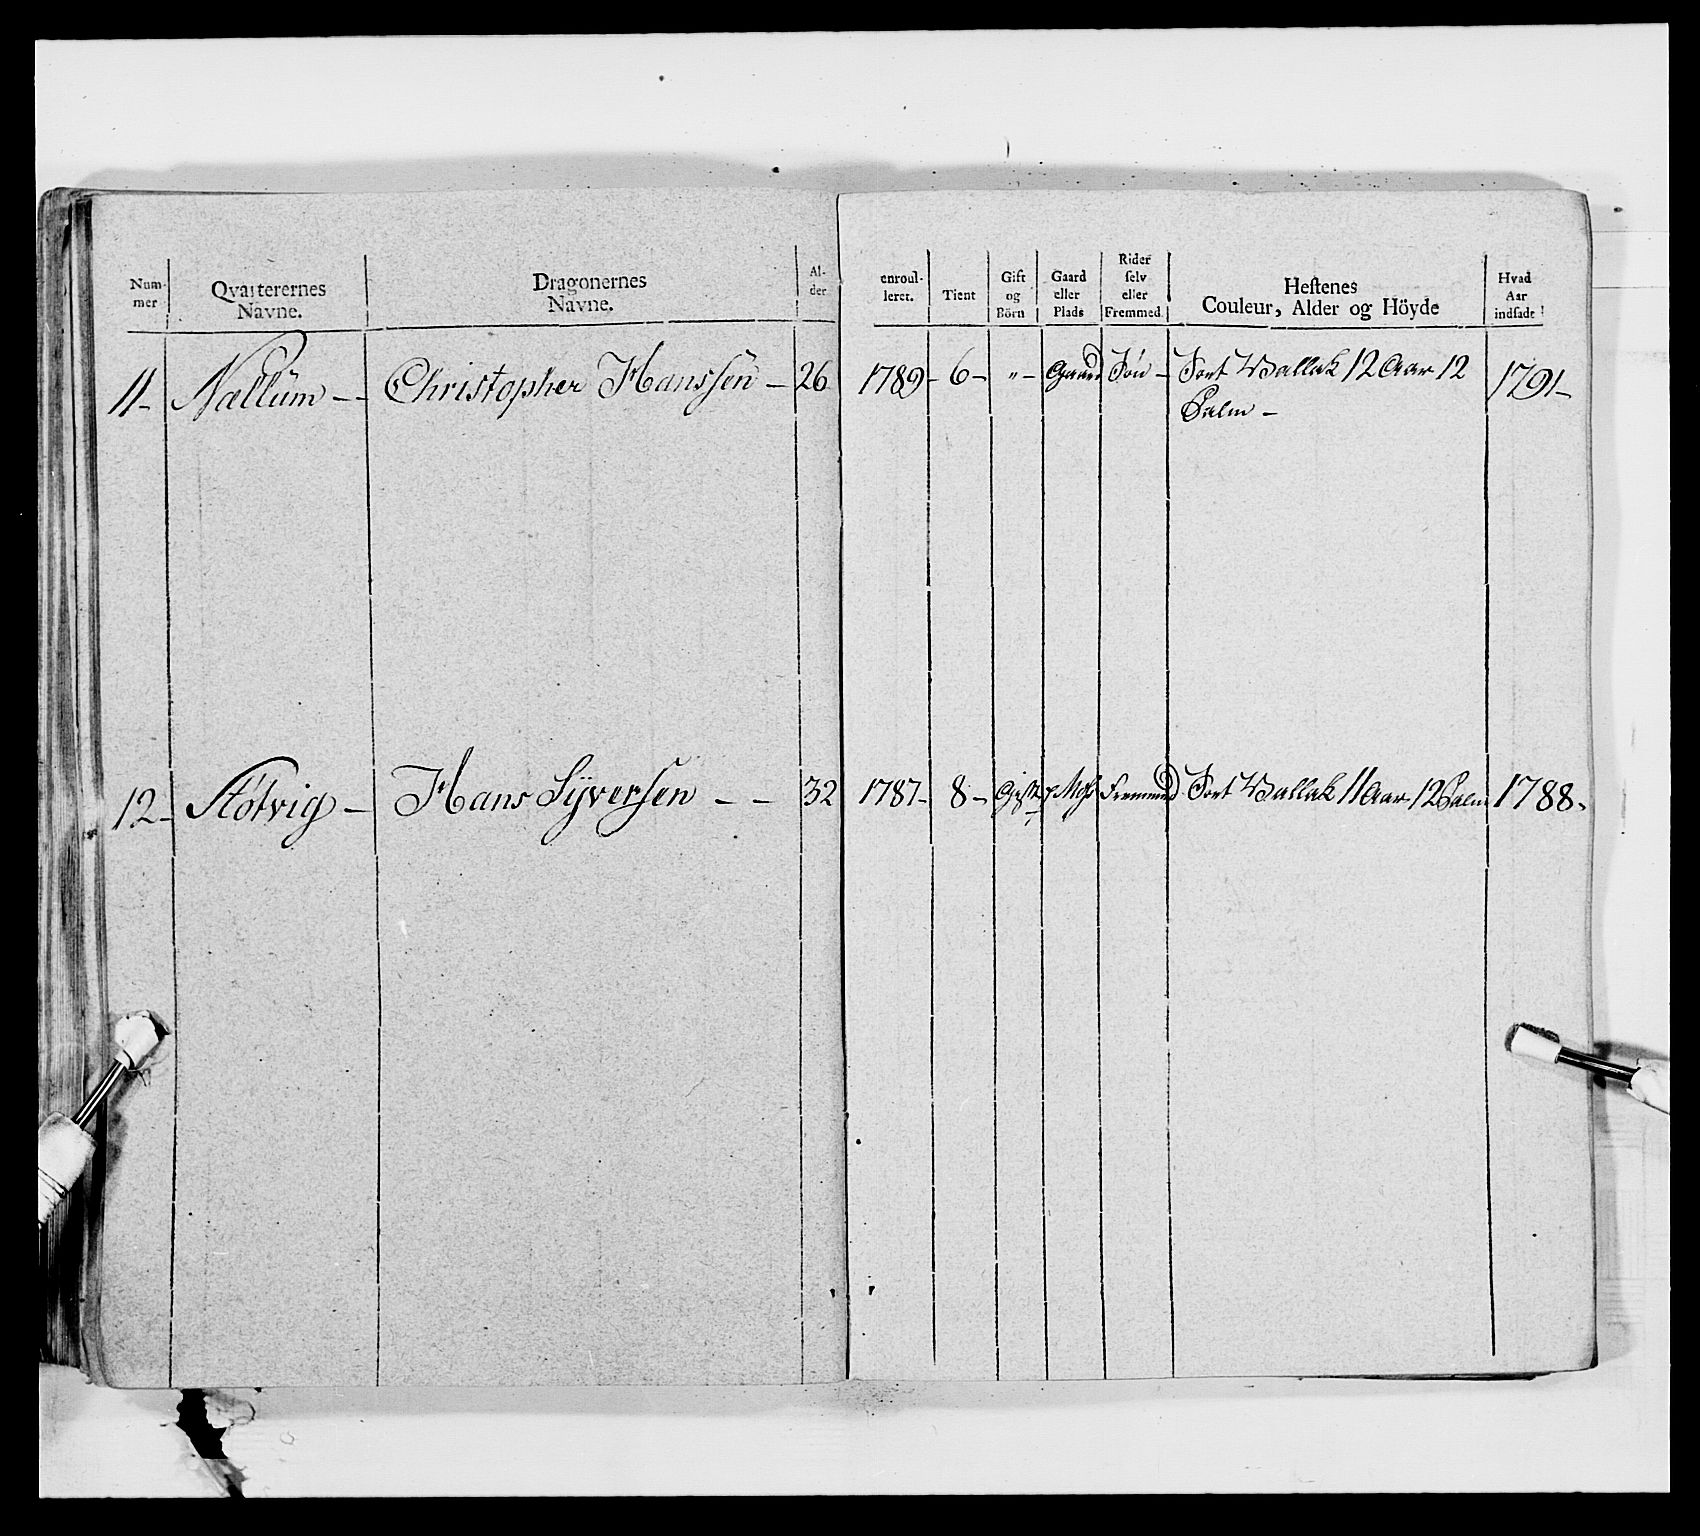 Num-
mer
Qvarterernes
Navne.
Dragonernes
Navne.
Al-
der
enroul-
leret.
Tient
Gift
og
Börn
Gaard
eller
Plads
Rider
selv
eller
Fremmed.
Hestenes
Couleur, Alder og Höyde
Hvad
Aar
indsadt
11- Nællum - - Christopher Hanssen - 26 1789- 6- "- Gaard Søn - Sort Wallak 12 Aar 12 1791-
Palm -
12- Støtvig - Hans Syversen - - 32 1787- 8- Gift Fremmed Sort Wallak 11 Aar 12 Palm 1788.